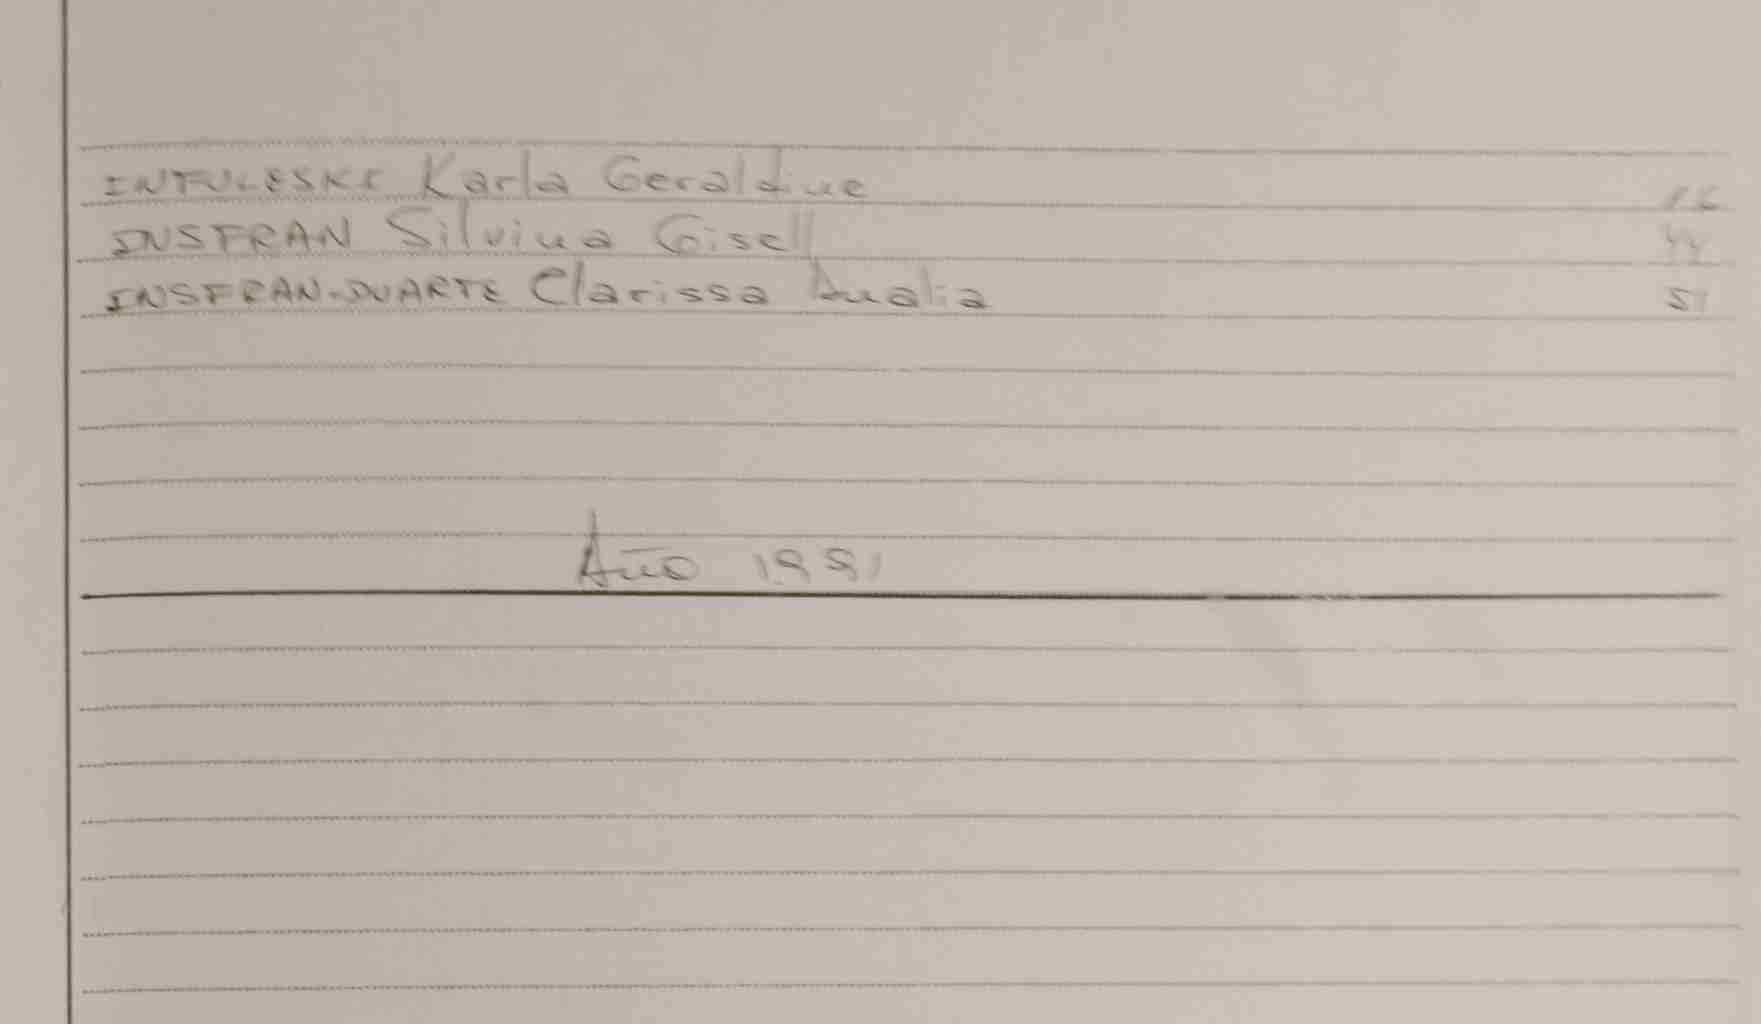 INTULESKI Karla Geraldine 16
INSFRAN Silvina Gisell 44
INSFRAN-DUARTE Clarissa Analia 51
Año 1991